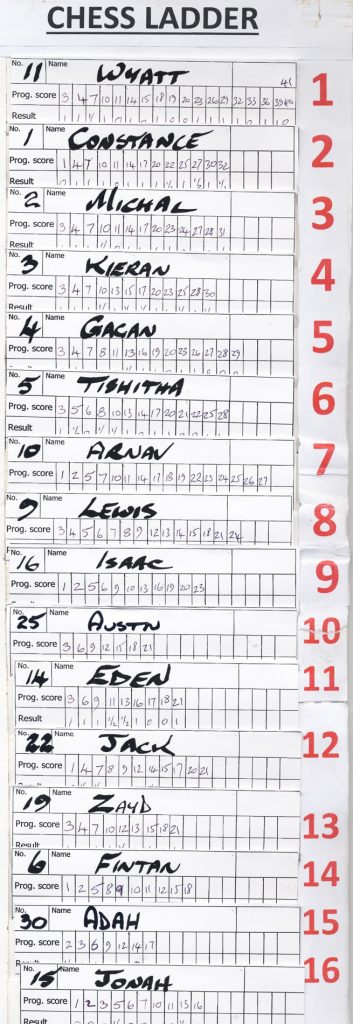 CHESS LADDER
No. 11 Name WYATT 41 1
Prog. score 3 4 7 10 11 14 15 18 19 20 23 26 29 32 33 36 39 40
Result
No. 1 Name CONSTANCE 2
Prog. score 1 4 7 10 11 14 17 20 22 25 27 30 32
Result
No. 2 Name MICHAL 3
Prog. score 3 4 7 10 11 14 17 20 23 24 27 28 31
Result
No. 3 Name KIERAN 4
Prog. score 3 4 7 10 13 15 17 20 23 25 28 30
Result
No. 4 Name GAGAN 5
Prog. score 3 4 7 8 11 13 16 19 20 23 26 27 28 29
No. 5 Name TISHITHA 6
Prog. score 3 5 6 8 10 13 14 17 20 21 22 25 28
Result
No. 10 Name ARNAV 7
Prog. score 1 2 5 7 10 11 14 17 18 19 22 23 24 25 26 27
No. 9 Name LEWIS 8
Prog. score 3 4 5 6 7 8 9 12 13 14 15 18 21 24
No. 16 Name ISAAC 9
Prog. score 1 2 5 6 9 10 13 16 19 20 23
No. 25 Name AUSTN 10
Prog. score 3 6 9 12 15 18 21
No. 14 Name EDEN 11
Prog. score 3 6 9 11 13 16 17 18 21
Result 1 1 1 ½ ½ 1 0 0 1
No. 22 Name JACK 12
Prog. score 1 4 7 8 9 12 14 15 17 20 21
No. 19 Name ZAYD 13
Prog. score 3 4 7 10 12 13 15 18 21
Result
No. 6 Name FINTAN 14
Prog. score 1 2 5 8 9 10 11 12 15 18
No. 30 Name ADAH 15
Prog. score 2 3 6 9 12 14 17
No. 15 Name JONAH 16
Prog. score 1 2 3 5 6 7 10 11 13 16